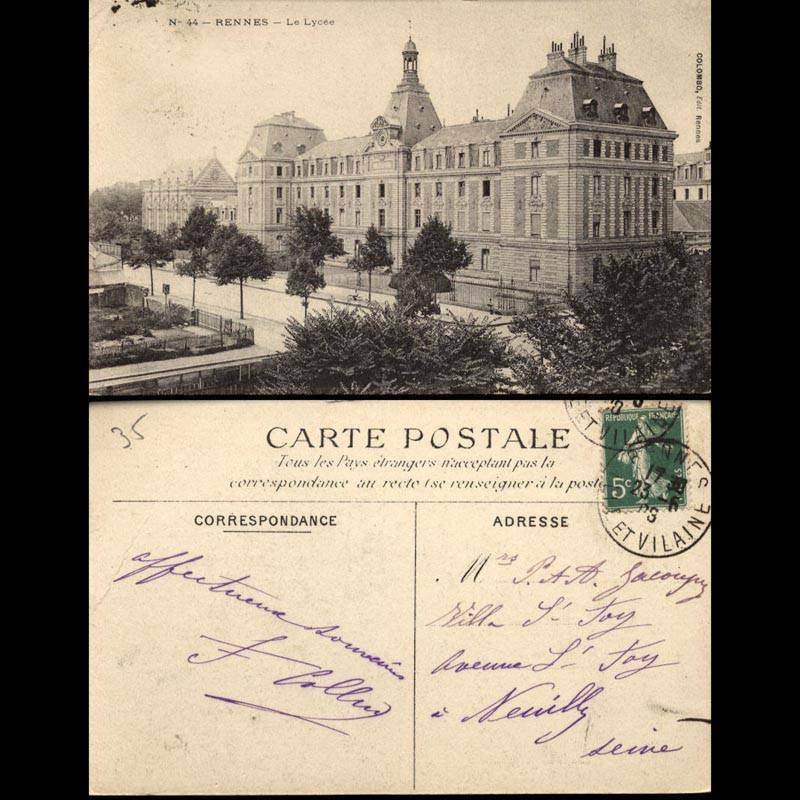 No 44 — RENNES — Le Lycée
COLOMBO, Edit. Rennes
35
CARTE POSTALE
Tous les Pays étrangers n'acceptant pas la
correspondance au recto (se renseigner à la poste
CORRESPONDANCE
ADRESSE
RÉPUBLIQUE FRANÇAISE
5c
RENNES
ET VILAINE
affectueux souvenirs
F Collin
Mrs P. A. A.
Villa St Foy
Avenue St Foy
à Neuilly
seine